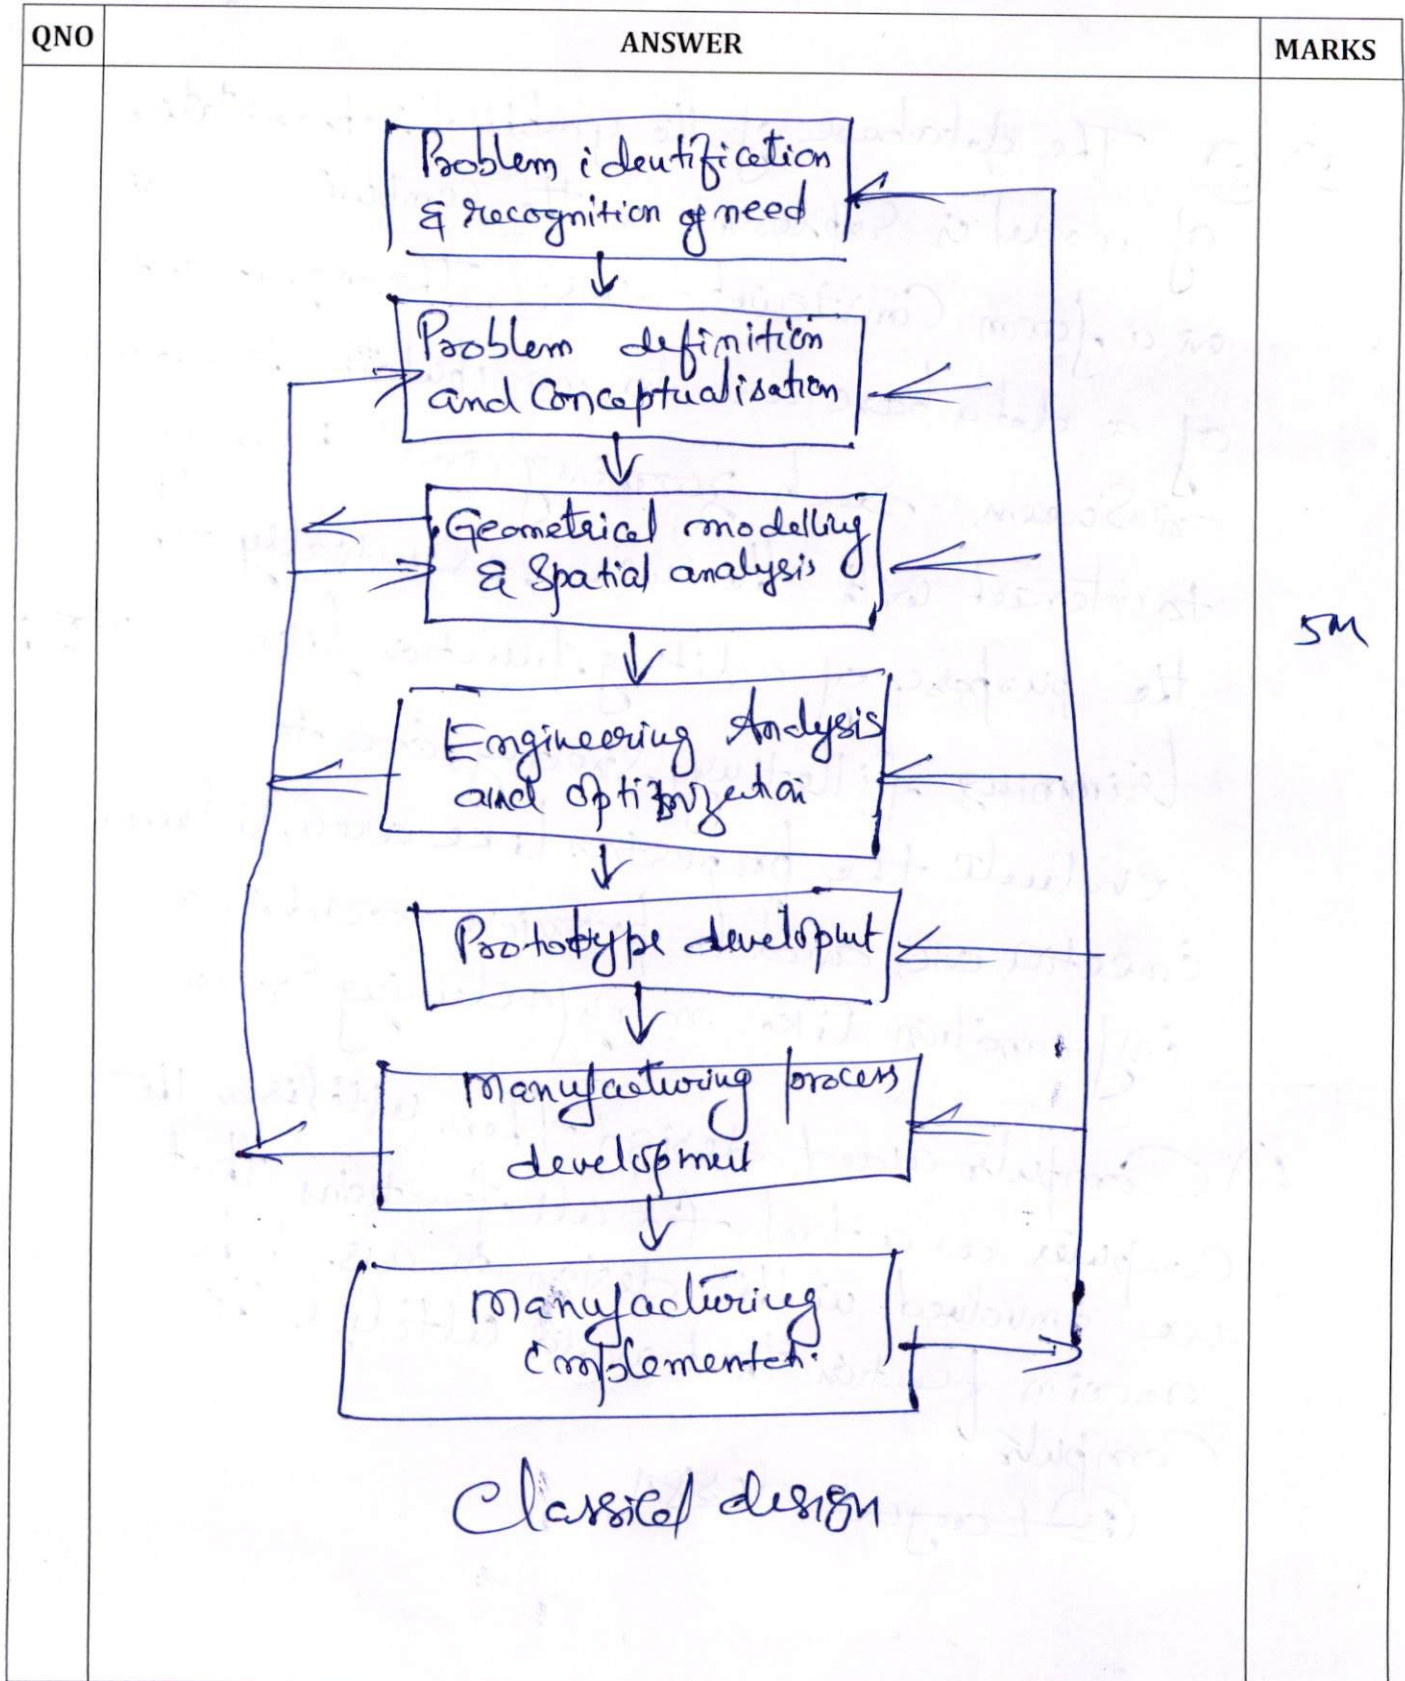 QNO ANSWER MARKS
Problem identification
& recognition of need
Problem definition
and Conceptualisation
Geometrical modelling
& Spatial analysis
5M
Engineering Analysis
and optimization
Prototype development
Manufacturing process
development
Manufacturing
implementati.
Classical design